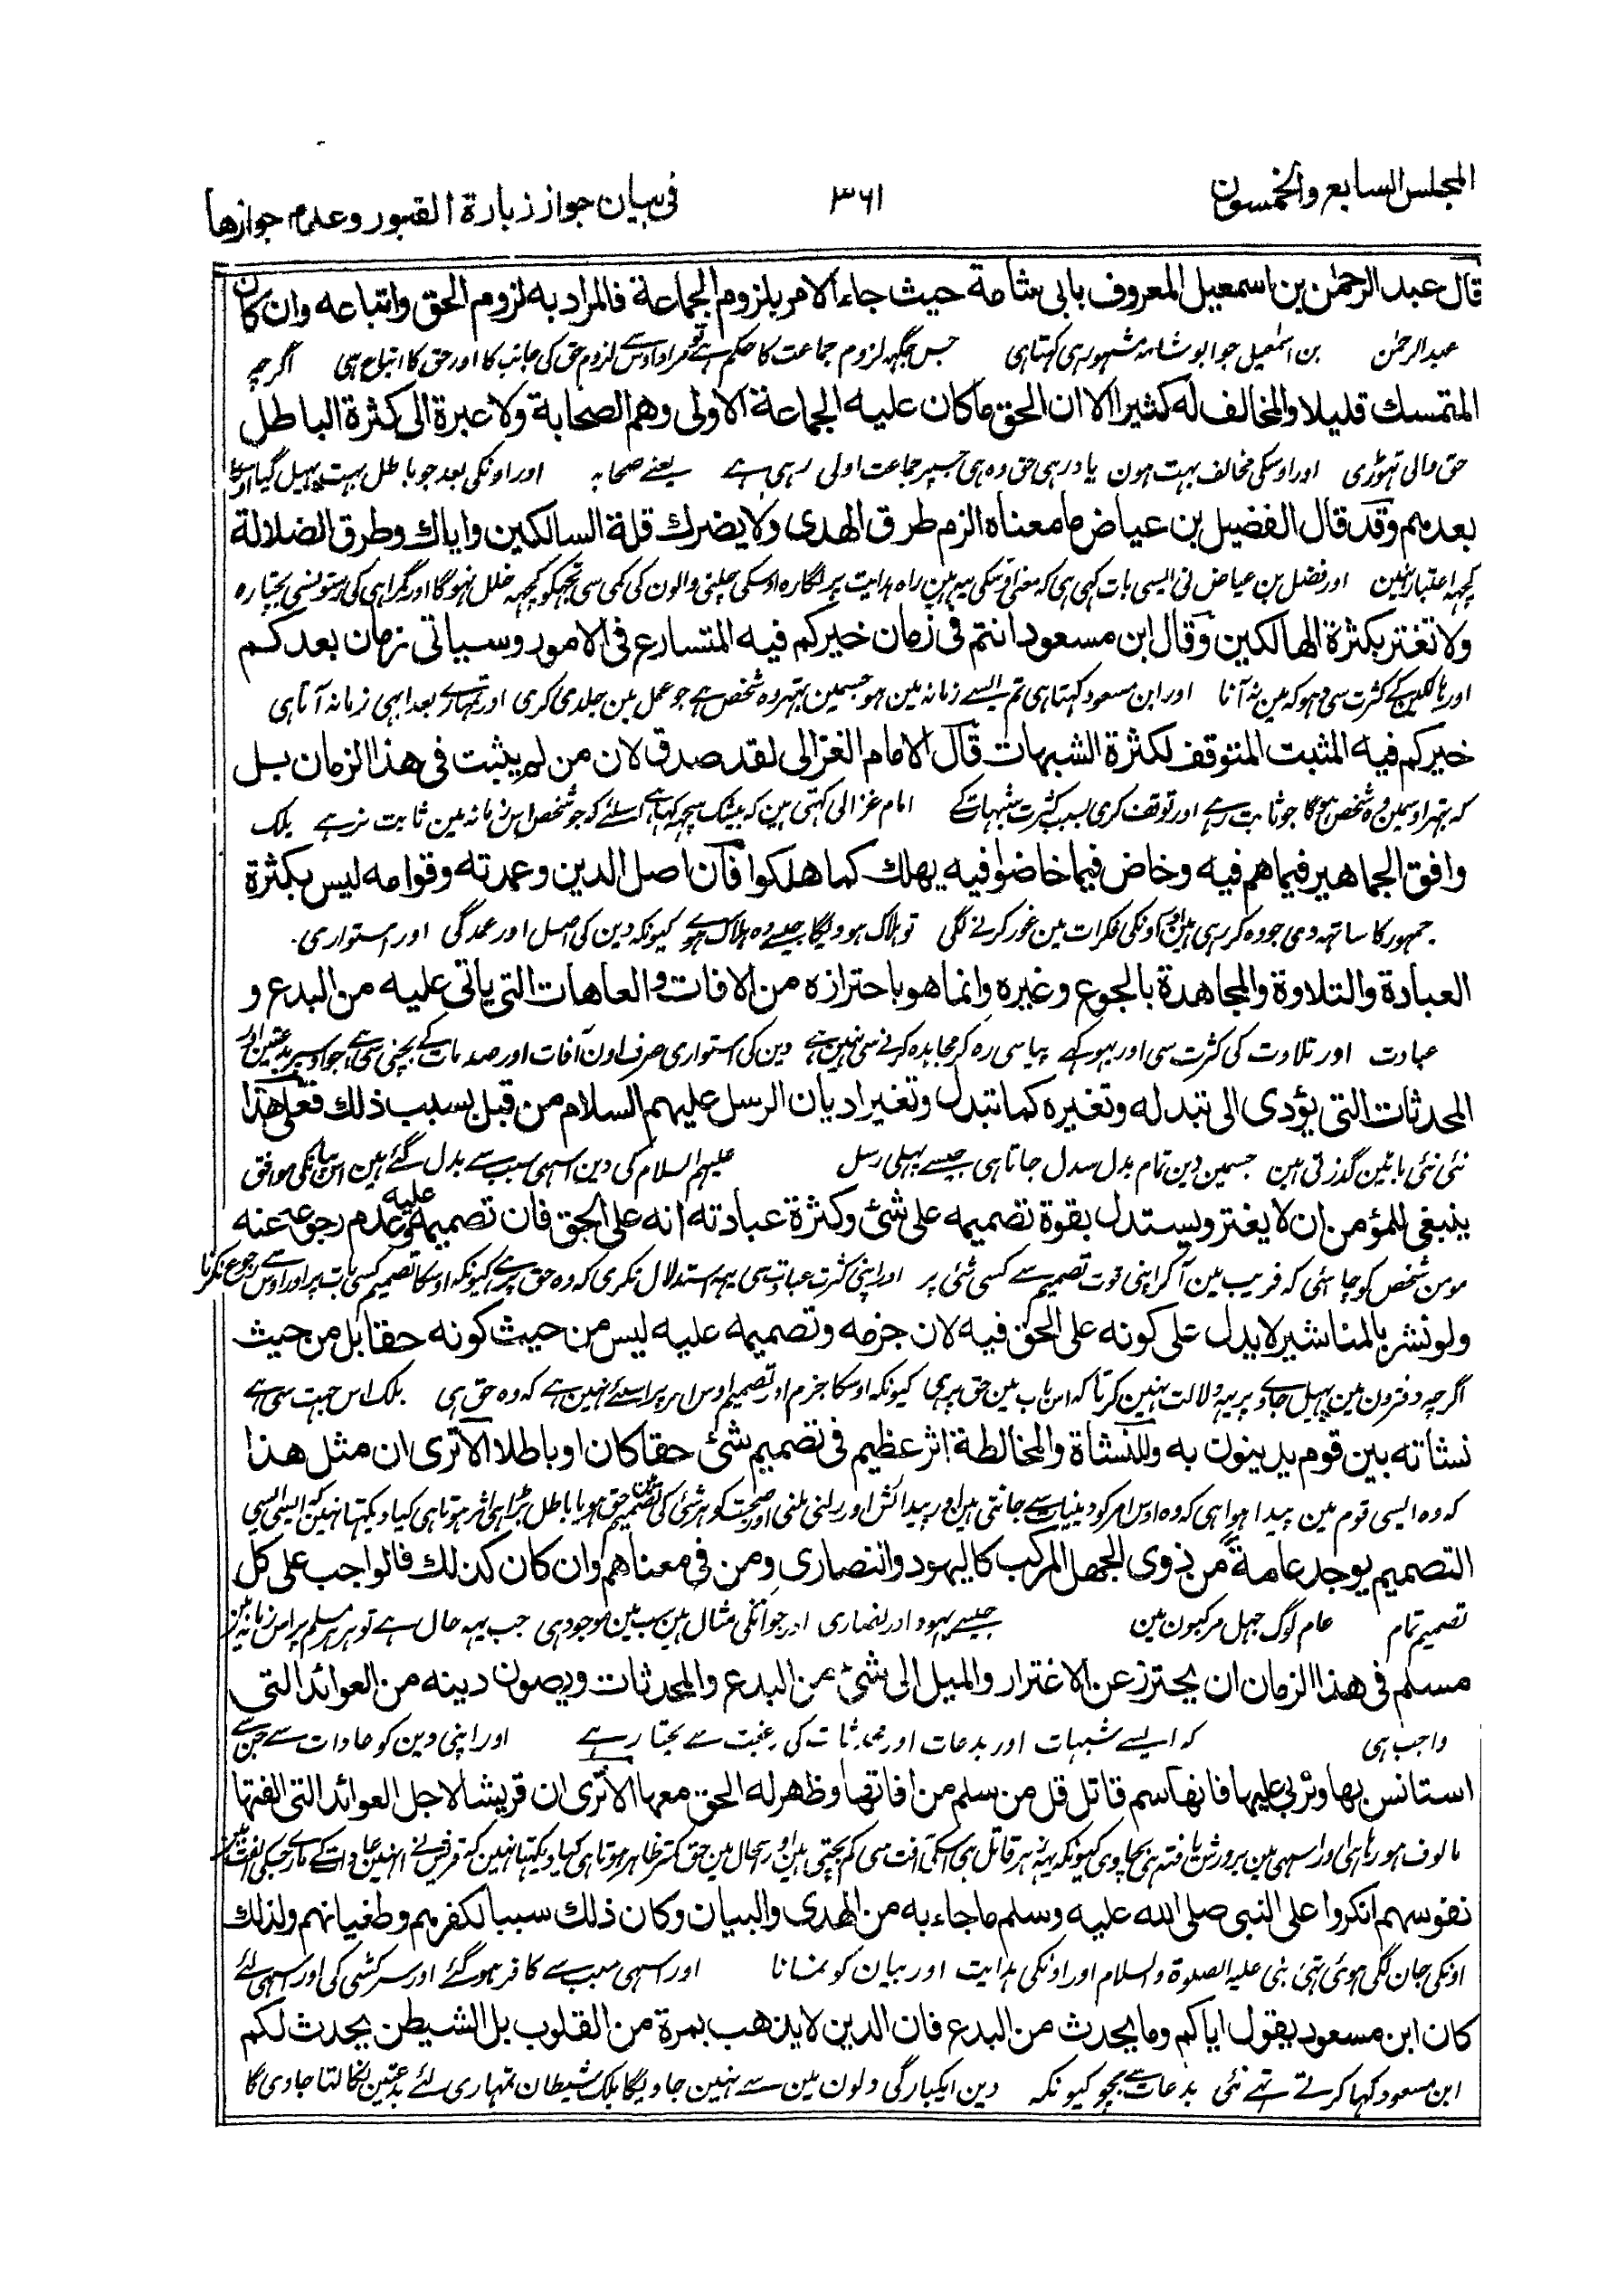 المجلس السابع والخمسون
٣٦١
فی بیان جواز زیارة القبور وعدم جوازها
قال عبد الرحمٰن بن اسمعیل المعروف بابی شامة حیث جاء الامر بلزوم الجماعة فالمراد به لزوم الحق واتباعه وان کان
عبدالرحمٰن بن اسمٰعیل جو ابو شامہ مشہور ہی کہتا ہی جس جگہہ لزوم جماعت کا حکم ہے تو مراد اوس سے لزوم حق کی جانب کا اور حق کا اتباع ہی اگرچہ
المتمسك قلیلا والمخالف له کثیرا الا ان الحق ما کان علیه الجماعة الاولی وهم الصحابة ولا عبرة الی کثرة الباطل
حق والی تہوڑی اور اوسکی مخالف بہت ہون یاد رہی حق وہ ہی جسپر جماعت اولی رہی ہے یعنے صحابہ اور اونکی بعد جو باطل بہت پہیل گیا اوسکا
بعدهم وقد قال الفضیل بن عیاض ما معناه الزم طرق الهدی ولا یضرك قلة السالکین وایاك وطرق الضلالة
کچہہ اعتبار نہین اور فضل بن عیاض نی ایسی بات کہی ہی کہ معنی اوسکی یہ ہین راہ ہدایت پر لگا رہ اوسکی چلنی والون کی کمی سی تجہکو کچہہ خلل نہوگا اور گمراہی کی رستونسی بچتا رہ
ولا تغتر بکثرة الهالکین وقال ابن مسعود انتم فی زمان خیرکم فیه المتسارع فی الامور وسیاتی زمان بعدکم
اور ہالکین کے کثرت سی دہوکہ مین نہ آنا اور ابن مسعود کہتا ہی تم ایسے زمانہ مین ہو جسمین بہتر وہ شخص ہے جو عمل مین جلدی کری اور تمہارے بعد ابہی زمانہ آتا ہی
خیرکم فیه المثبت المتوقف لکثرة الشبهات قال الامام الغزالی لقد صدق لان من لم یثبت فی هذا الزمان بل
کہ بہتر اوسمین وہ شخص ہوگا جو ثابت رہے اور توقف کری بسبب کثرت شبہات کے امام غزالی کہتی ہین کہ بیشک سچ کہا ہے اسلئے کہ جو شخص اس زمانہ مین ثابت نرہے بلکہ
وافق الجماهیر فیما هم فیه وخاض فیما خاضوا فیه یهلك کما هلکوا فان اصل الدین وعمدته وقوامه لیس بکثرة
جمہور کا ساتہہ دی جو وہ کر رہی ہین اور اونکی فکرات مین غور کرنے لگی تو ہلاک ہوویگا جیسے وہ ہلاک ہوے کیونکہ دین کی اصل اور عمدگی اور استواری
العبادة والتلاوة والمجاهدة بالجوع وغیره وانما هو باحترازه من الافات والعاهات التی یاتی علیه من البدع و
عبادت اور تلاوت کی کثرت سی اور بہوکے پیاسی رہ کر مجاہدہ کرنے سی نہین ہے دین کی استواری صرف اون آفات اور صدمات کے بچنی سی ہے جو اوسپر بدعتین اور
المحدثات التی یؤدی الی تبدله وتغیره کما تبدل وتغیر ادیان الرسل علیهم السلام من قبل بسبب ذلك فعلی هذا
نئی نئی باتین گذرتی ہین جسمین دین تمام بدل سدل جاتا ہی جیسے پہلی رسل علیہم السلام کی دین اسہی سبب سے بدل گئے ہین اس بیانکی موافق
ینبغی للمؤمن ان لا یغتر ویستدل بقوة تصمیمه علی شئ وکثرة عبادته انه علی الحق فان تصمیمه علیه وعدم رجوعه عنه
مومن شخص کو چاہئی کہ فریب مین آکر اپنی قوت تصمیم سے کسی شئی پر اور اپنی کثرت عبادت سی یہہ استدلال نکری کہ وہ حق پر ہے کیونکہ اوسکا تصمیم کسی بات پر اور اوس سے رجوع نکرنا
ولو نشر بالمناشیر لا یدل علی کونه علی الحق فیه لان جزمه وتصمیمه علیه لیس من حیث کونه حقا بل من حیث
اگرچہ دفترون مین پہیل جاے پر یہہ دلالت نہین کرتا کہ اس باب مین حق پر ہی کیونکہ اوسکا جزم اور تصمیم اوس امر پر اسلئے نہین ہے کہ وہ حق ہی بلکہ اس جہت سی ہے
نشاته بین قوم یدینون به وللنشاة والمخالطة اثر عظیم فی تصمیم شئ حقا کان او باطلا الا تری ان مثل هذا
کہ وہ ایسی قوم مین پیدا ہوا ہی کہ وہ اوس امر کو دینیات سے جانتی ہین اور پیدائش اور رلنی ملنی اور صحبت کو ہر شئی کی تصمیم مین حق ہو یا باطل بڑا ہی اثر ہوتا ہی کیا دیکہتا نہین کہ ایسی ایسی
التصمیم یوجد عامة من ذوی الجهل المرکب کالیهود والنصاری ومن فی معناهم وان کان کذلك فالواجب علی کل
تصمیم تمام عام لوگ جہل مرکبون مین جیسے یہود اور نصاری اور جو انکی مثال ہین سب مین موجود ہی جب یہہ حال ہے تو ہر ہر مسلم پر اس زمانہ مین
مسلم فی هذا الزمان ان یحترز عن الاغترار والمیل الی شئ من البدع والمحدثات ویصون دینه من العوائد التی
واجب ہی کہ ایسے شبہات اور بدعات اور محدثات کی رغبت سے بچتا رہے اور اپنی دین کو عادات سے جن سے
استانس بها وتربی علیها فانها سم قاتل قل من سلم من افاتها وظهر له الحق معها الا تری ان قریشا لاجل العوائد التی الفتها
مالوف ہو رہا ہی اور اسہی مین پرورش یافتہ ہی بچاوی کیونکہ یہہ زہر قاتل ہی اسکی آفت سی کم بچتی ہین اور اسحال مین حق کمتر ظاہر ہوتا ہی کیا دیکہتا نہین کہ قریش نے انہین عادات کے مارے جنکی الفت مین
نفوسهم انکروا علی النبی صلی الله علیه وسلم ما جاء به من الهدی والبیان وکان ذلك سببا لکفرهم وطغیانهم ولذلك
اونکی جان لگی ہوئی تہی نبی علیہ الصلوة والسلام اور اونکی ہدایت اور بیان کو نمانا اور اسہی سبب سے کافر ہوگئے اور سرکشی کی اور اسہی لئے
کان ابن مسعود یقول ایاکم وما یحدث من البدع فان الدین لا یذهب بمرة من القلوب بل الشیطن یحدث لکم
ابن مسعود کہا کرتے تہے نئی بدعات سے بچو کیونکہ دین ایکبارگی دلون مین سے نہین جاویگا بلکہ شیطان تمہاری لئے بدعتین نکالتا جاوی گا